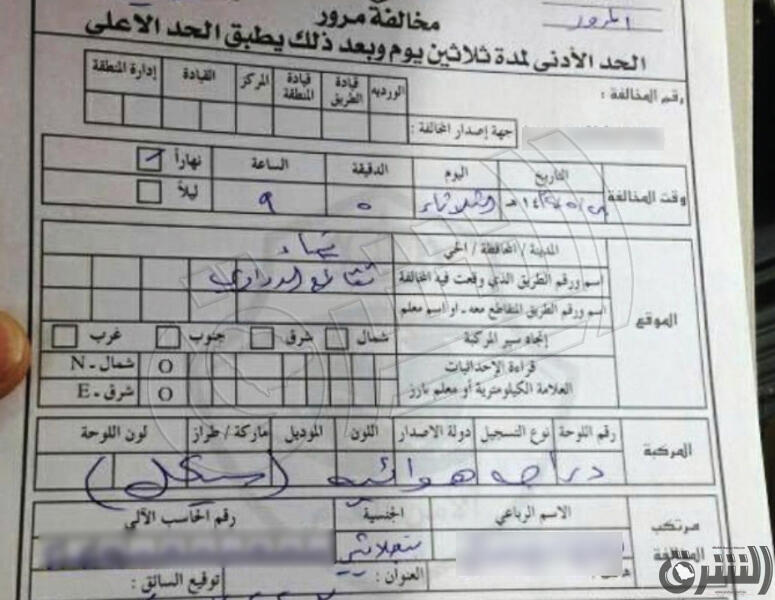 المرور
مخالفة مرور
الحد الأدنى لمدة ثلاثين يوم وبعد ذلك يطبق الحد الاعلى
رقم المخالفة :
الورديه قيادة الطريق قيادة المنطقة المركز القيادة إدارة المنطقة
جهة إصدار المخالفة :
وقت المخالفة
التاريخ اليوم الدقيقة الساعة نهاراً
الثلاثاء ٥ ٩ ليلاً
الموقع
المدينة / المحافظة / الحي تيماء
اسم ورقم الطريق الذي وقعت فيه المخالفة تقاطع
اسم ورقم الطريق المتقاطع معه ـ او اسم معلم
إتجاه سير المركبة شمال شرق جنوب غرب
قراءة الإحداثيات O شمال - N
العلامة الكيلومترية أو معلم بارز O شرق - E
المركبة
رقم اللوحة نوع التسجيل دولة الاصدار اللون الموديل ماركة / طراز لون اللوحة
دراجه هوائيه (سيكل)
مرتكب المخالفة
الاسم الرباعي الجنسية رقم الحاسب الآلي
بنجلاديشي
العنوان : توقيع السائق :
الشرق